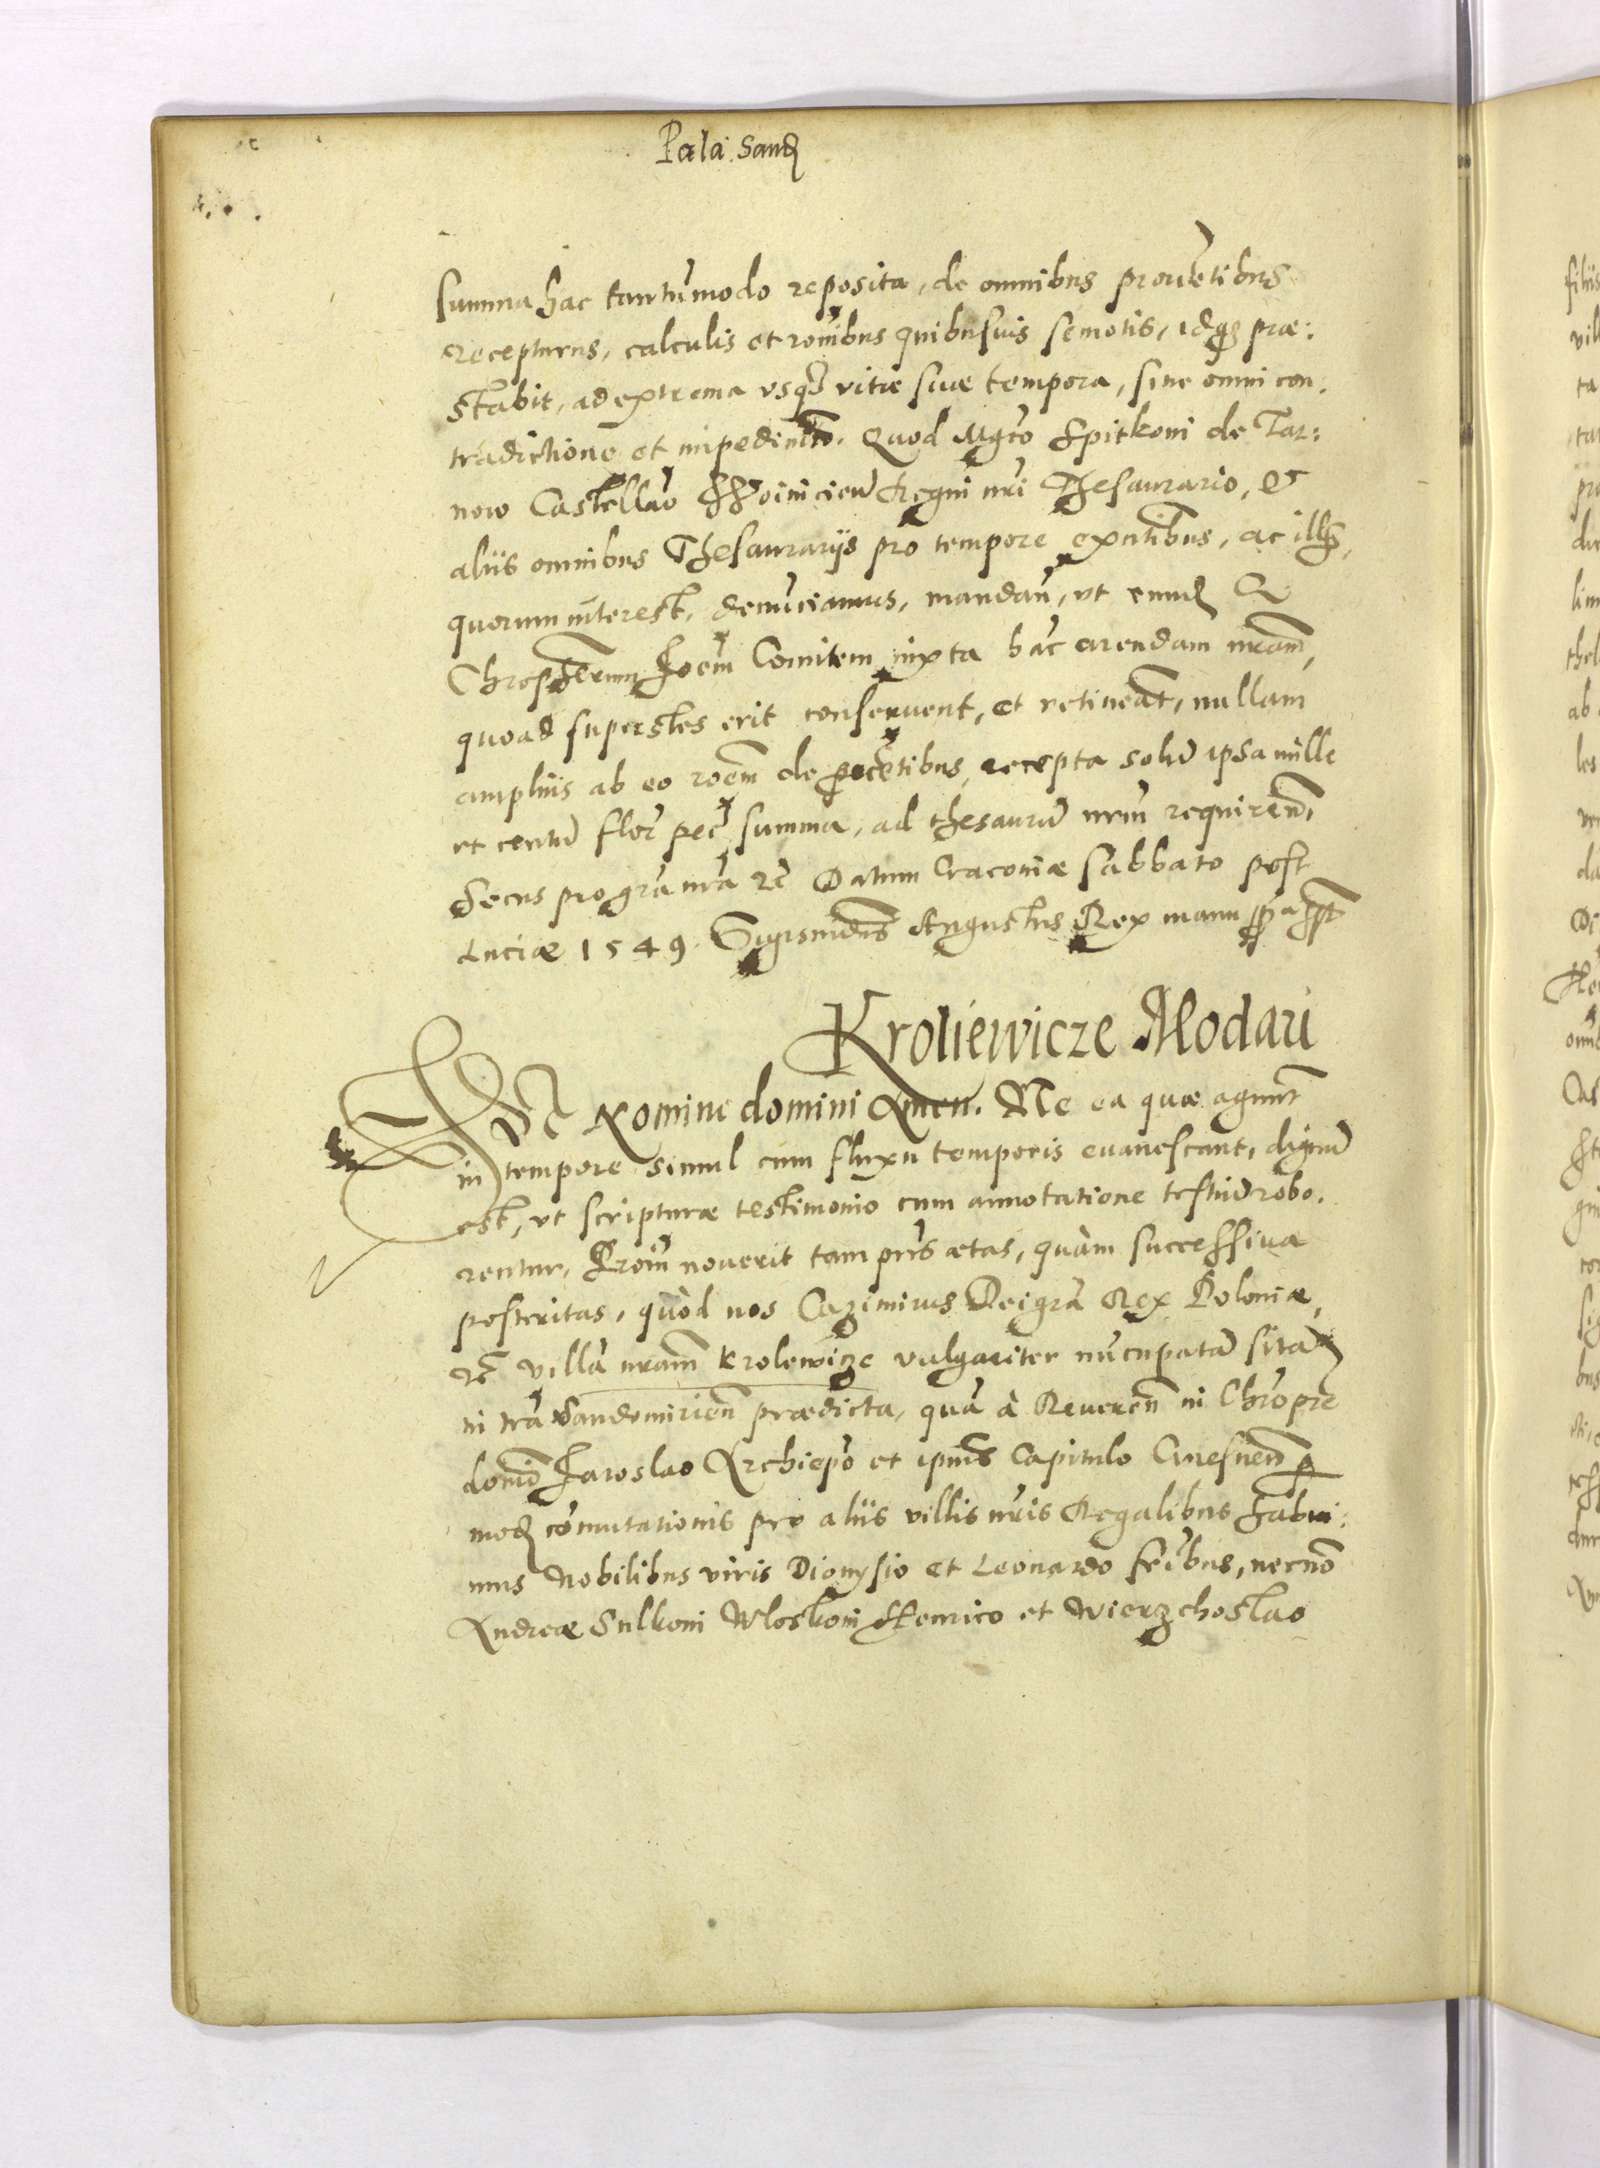 Pala: Sand
summa hac tantūmodo reposita, de omnibus prouētibus
recepturus, calculis et rōnibus quibusuis semotis, idq3 præ:
stabit, ad extrema usq3 vitæ suæ tempora, sine omni con:
tradictione et impedimēto. Quod Mgco Spitkoni de Tar:
now Castellāo Woiniciēn Regni nri Thesaurario, et
aliis omnibus Thesaurarijs pro tempore exn̄tibus, ac illis,
quorum interest, denūciamus, mandan̄, ut eund
Joēm Comitem iuxta hāc arendam nrām,
quoad superstes erit conseruent, et retineāt, nullam
amplius ab eo roēm de ꝓuētibus, recepta solū ipsa mille
et centū flor̄ pec̄ summa, ad thesaurū nrūm requiren̄,
Secus pro grā nrā rc̄ Datum Cracoviæ sabbato post
Luciæ 1549. Sigismūdus Augustus Rex manu ꝓpa sspt
Kroliewicze Modau
IN Nomine domini Amen. Ne ea quæ agunt̄
in tempore simul cum fluxu temporis euanescant, dignū
est, ut scripturæ testimonio cum annotatione testiū robo:
rentur, Proīn nouerit tam prn̄s ætas, quàm successiua
posteritas, quòd nos Cazimirus Dei grā Rex Poloniæ,
rc̄ villā nrām Krolewicze vulgariter nūcupatā sitā
in trā Sandomirien̄ prædicta, quā à Reueren̄ in Chro pre
domīo Jaroslao Archiepō et ipius Capitulo Gnesnen̄ ꝑ
mod cōmutationis pro aliis villis nris Regalibus habui:
mus Nobilibus viris Dionysio et Leonardo fribus, necnō
Andreæ Sulkoni Wloskoni Henrico et Wierzchoslao